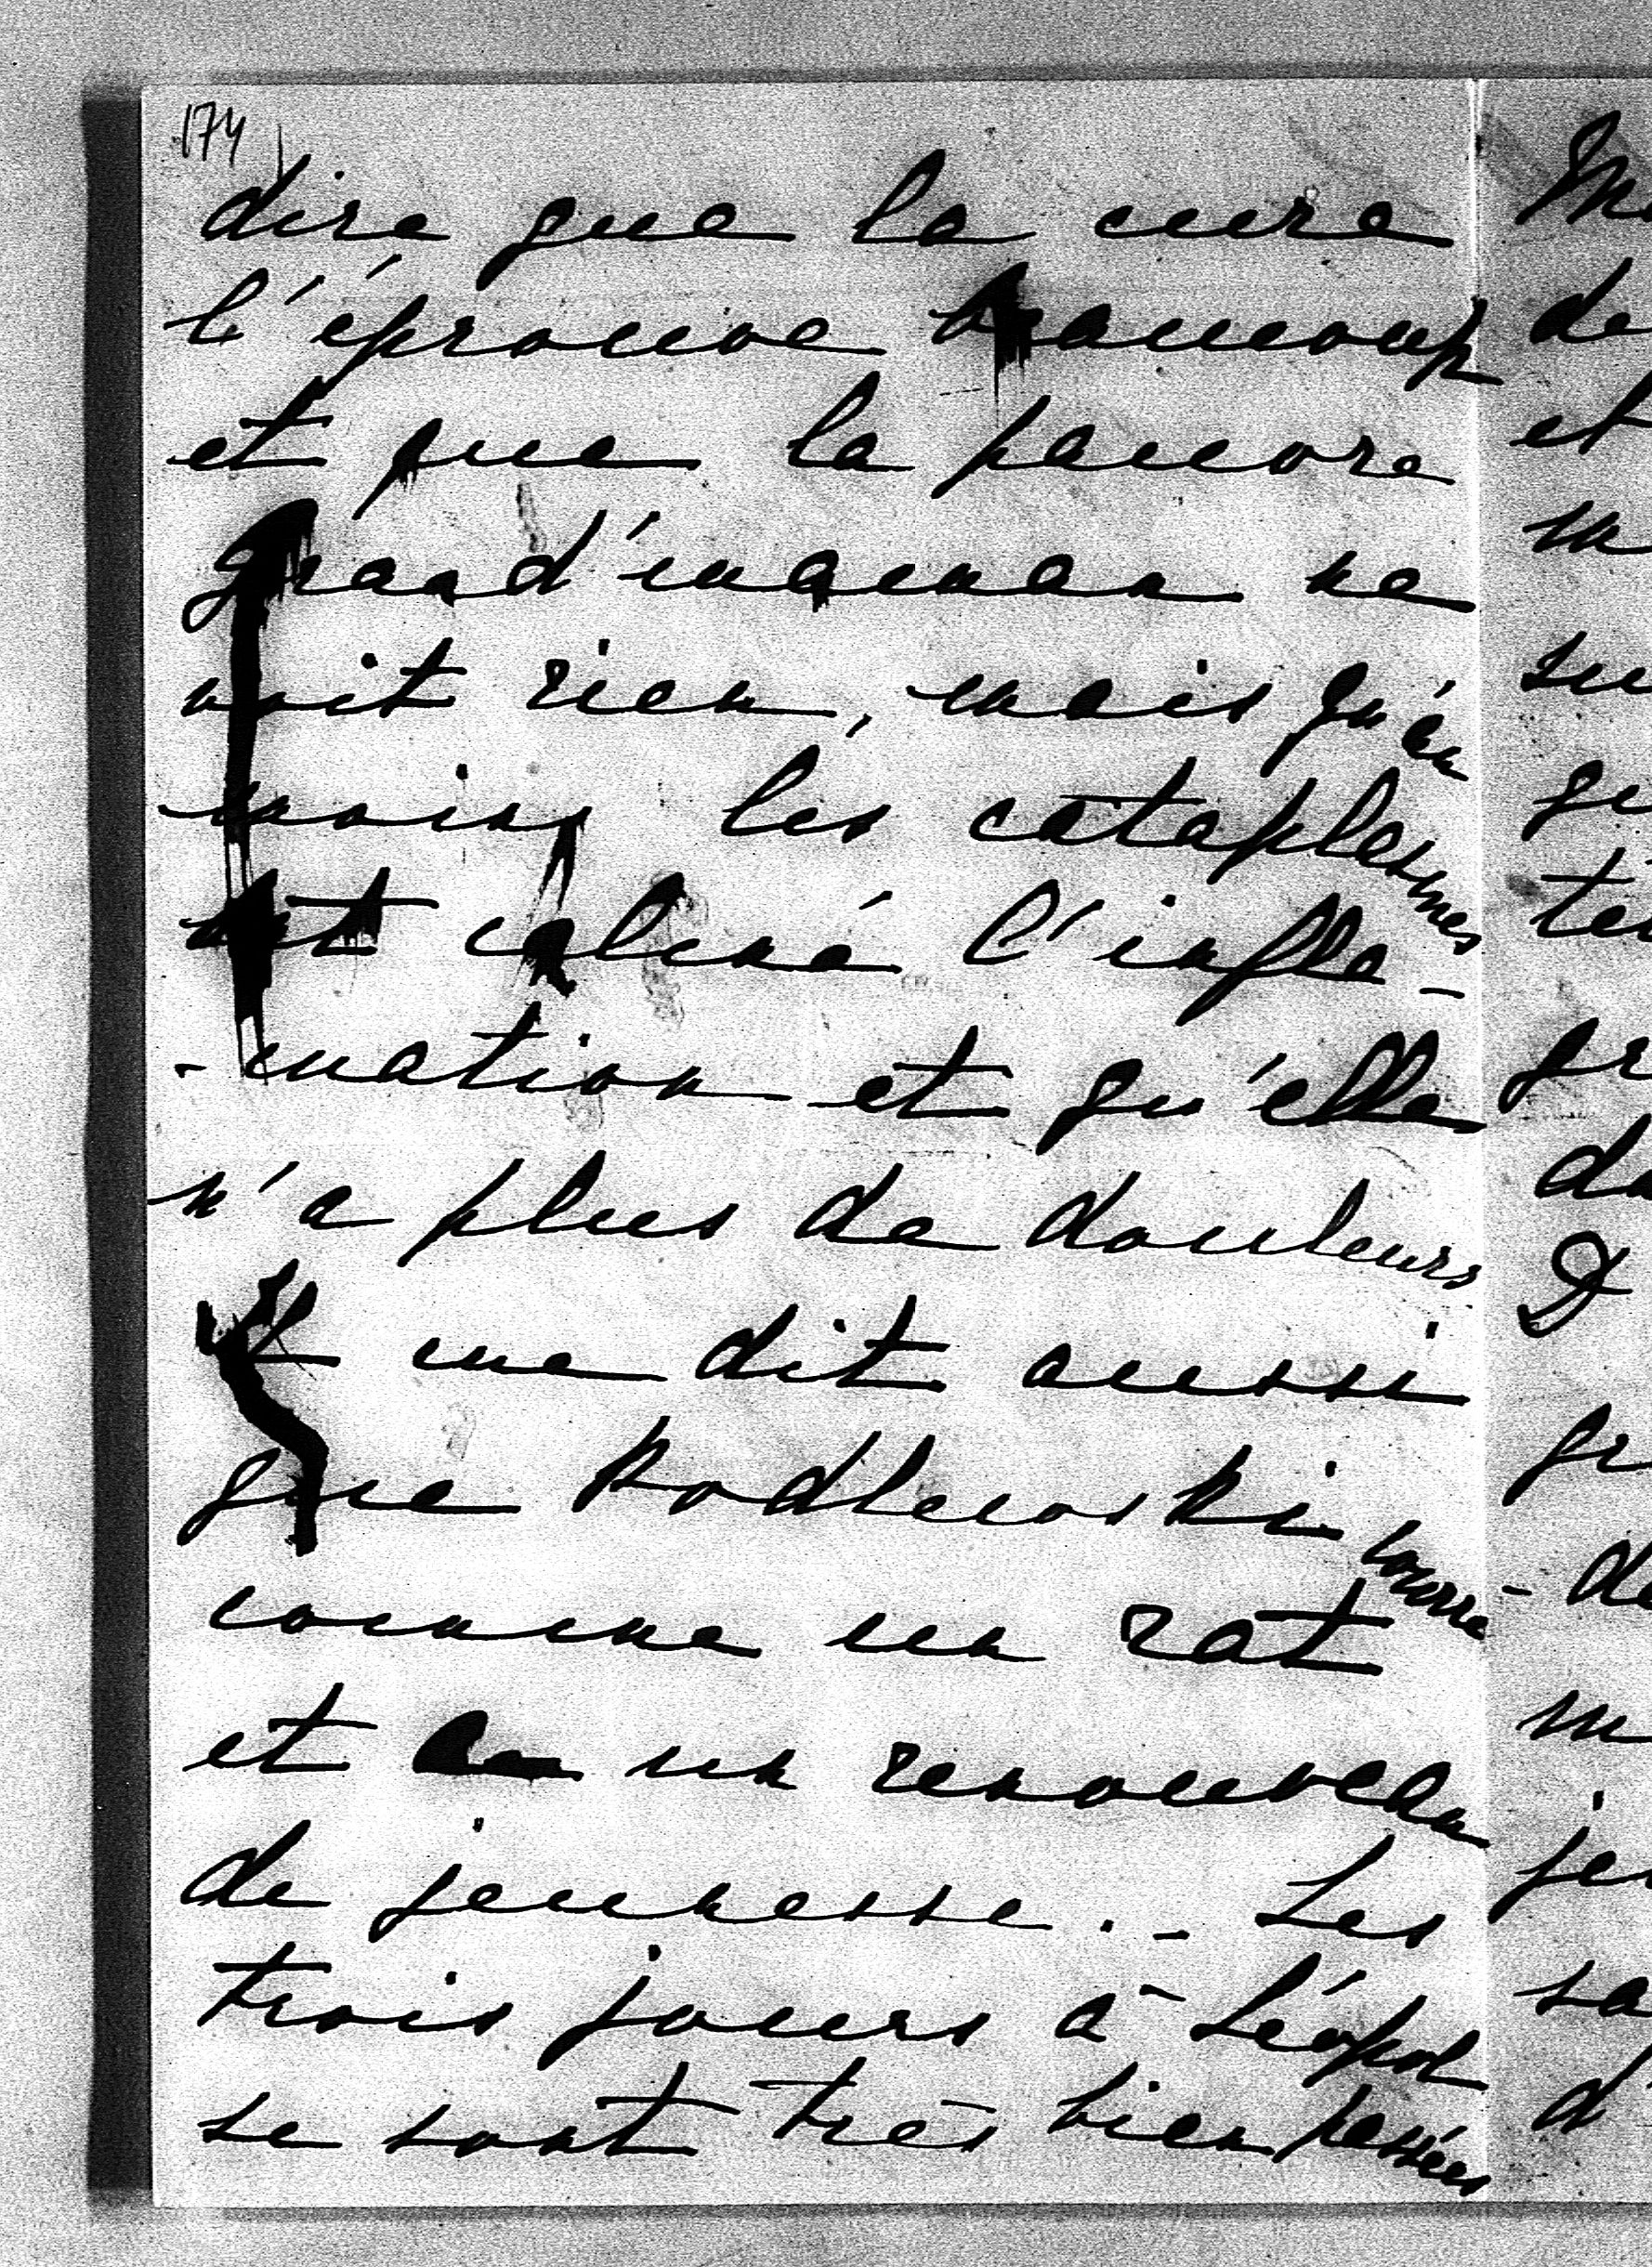 174
dire que la cure
l'éprouve beaucoup
et que la pauvre
grand'maman ne
voit rien, mais qu'au
moins les cataplasmes
ont calmé l'infla-
-mation et qu'elle
n'a plus de douleurs
Il me dit aussi
que Podlewski courre
comme un rat
et a un renouveau
de jeunesse. - Les
trois jours à Léopol
se sont très bien passées